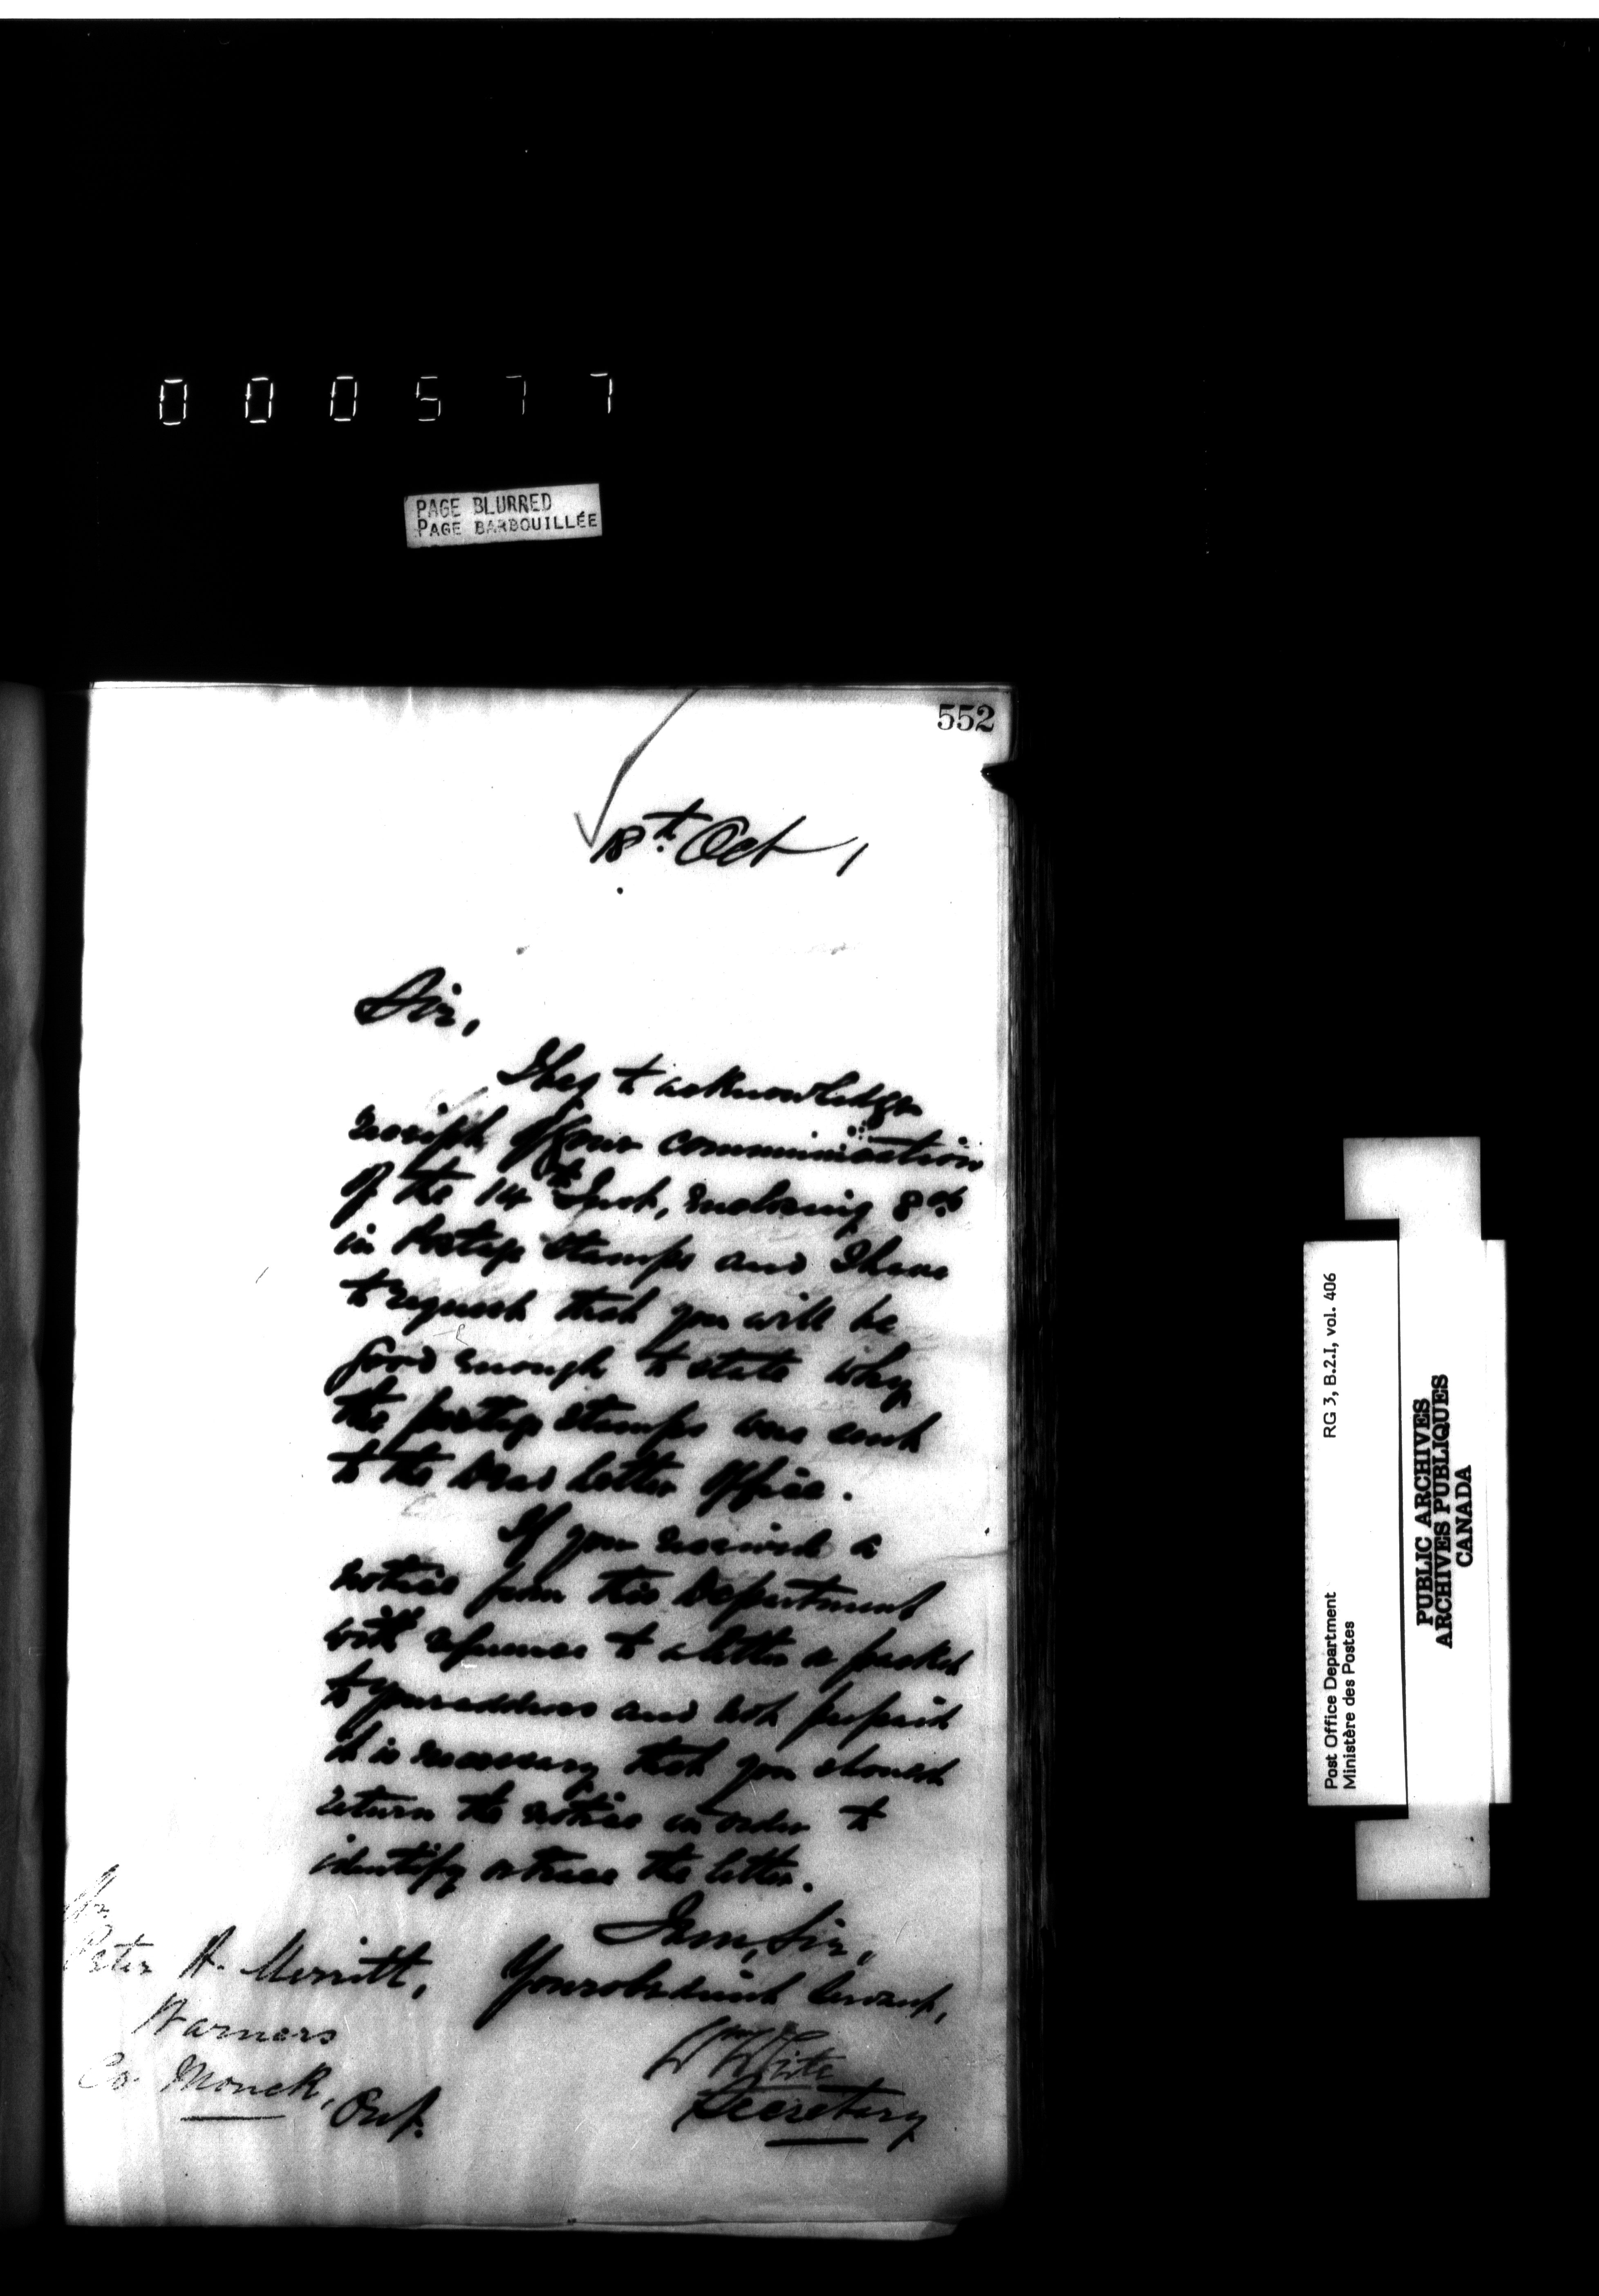 000577
PAGE BLURRED
PAGE BARBOUILLÉE
552
18th Oct,
Sir,
I beg to acknowledge
receipt of your communication
of the 14th Inst, enclosing 8cts
in Postage Stamps and I have
to request that you will be
good enough to state why
the postage stamps were sent
to the Dead Letter Office.
If you received a
notice from this Department
with reference to a letter or packet
to your address and not prepaid
it is necessary that you should
return the notice in order to
identify or trace the letter.
I am, Sir,
Your obedient Servant,
Wm White
Secretary
Mr
Peter A. Merritt,
Warners
Co Monck,
Ont.
Post Office Department RG 3, B.2.I, vol. 406
Ministère des Postes
PUBLIC ARCHIVES
ARCHIVES PUBLIQUES
CANADA